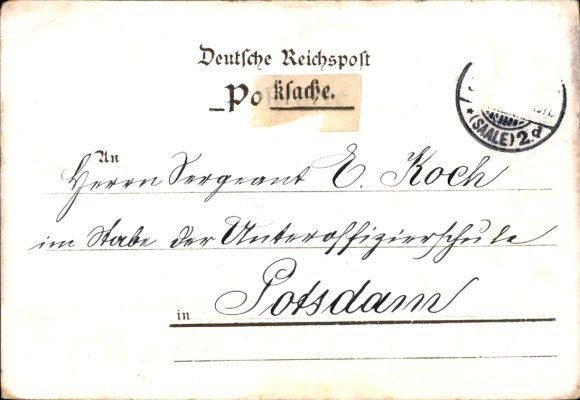 Deutsche Reichspost
Po ksache.
(SAALE) 2.d
An
Herrn Sergeant E. Koch
im Stabe der Unteroffizierschule
in Potsdam